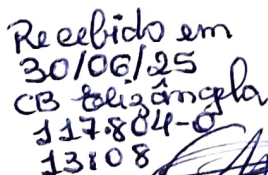 Recebido em
30/06/25
CB Elizângela
117.804-0
13:08